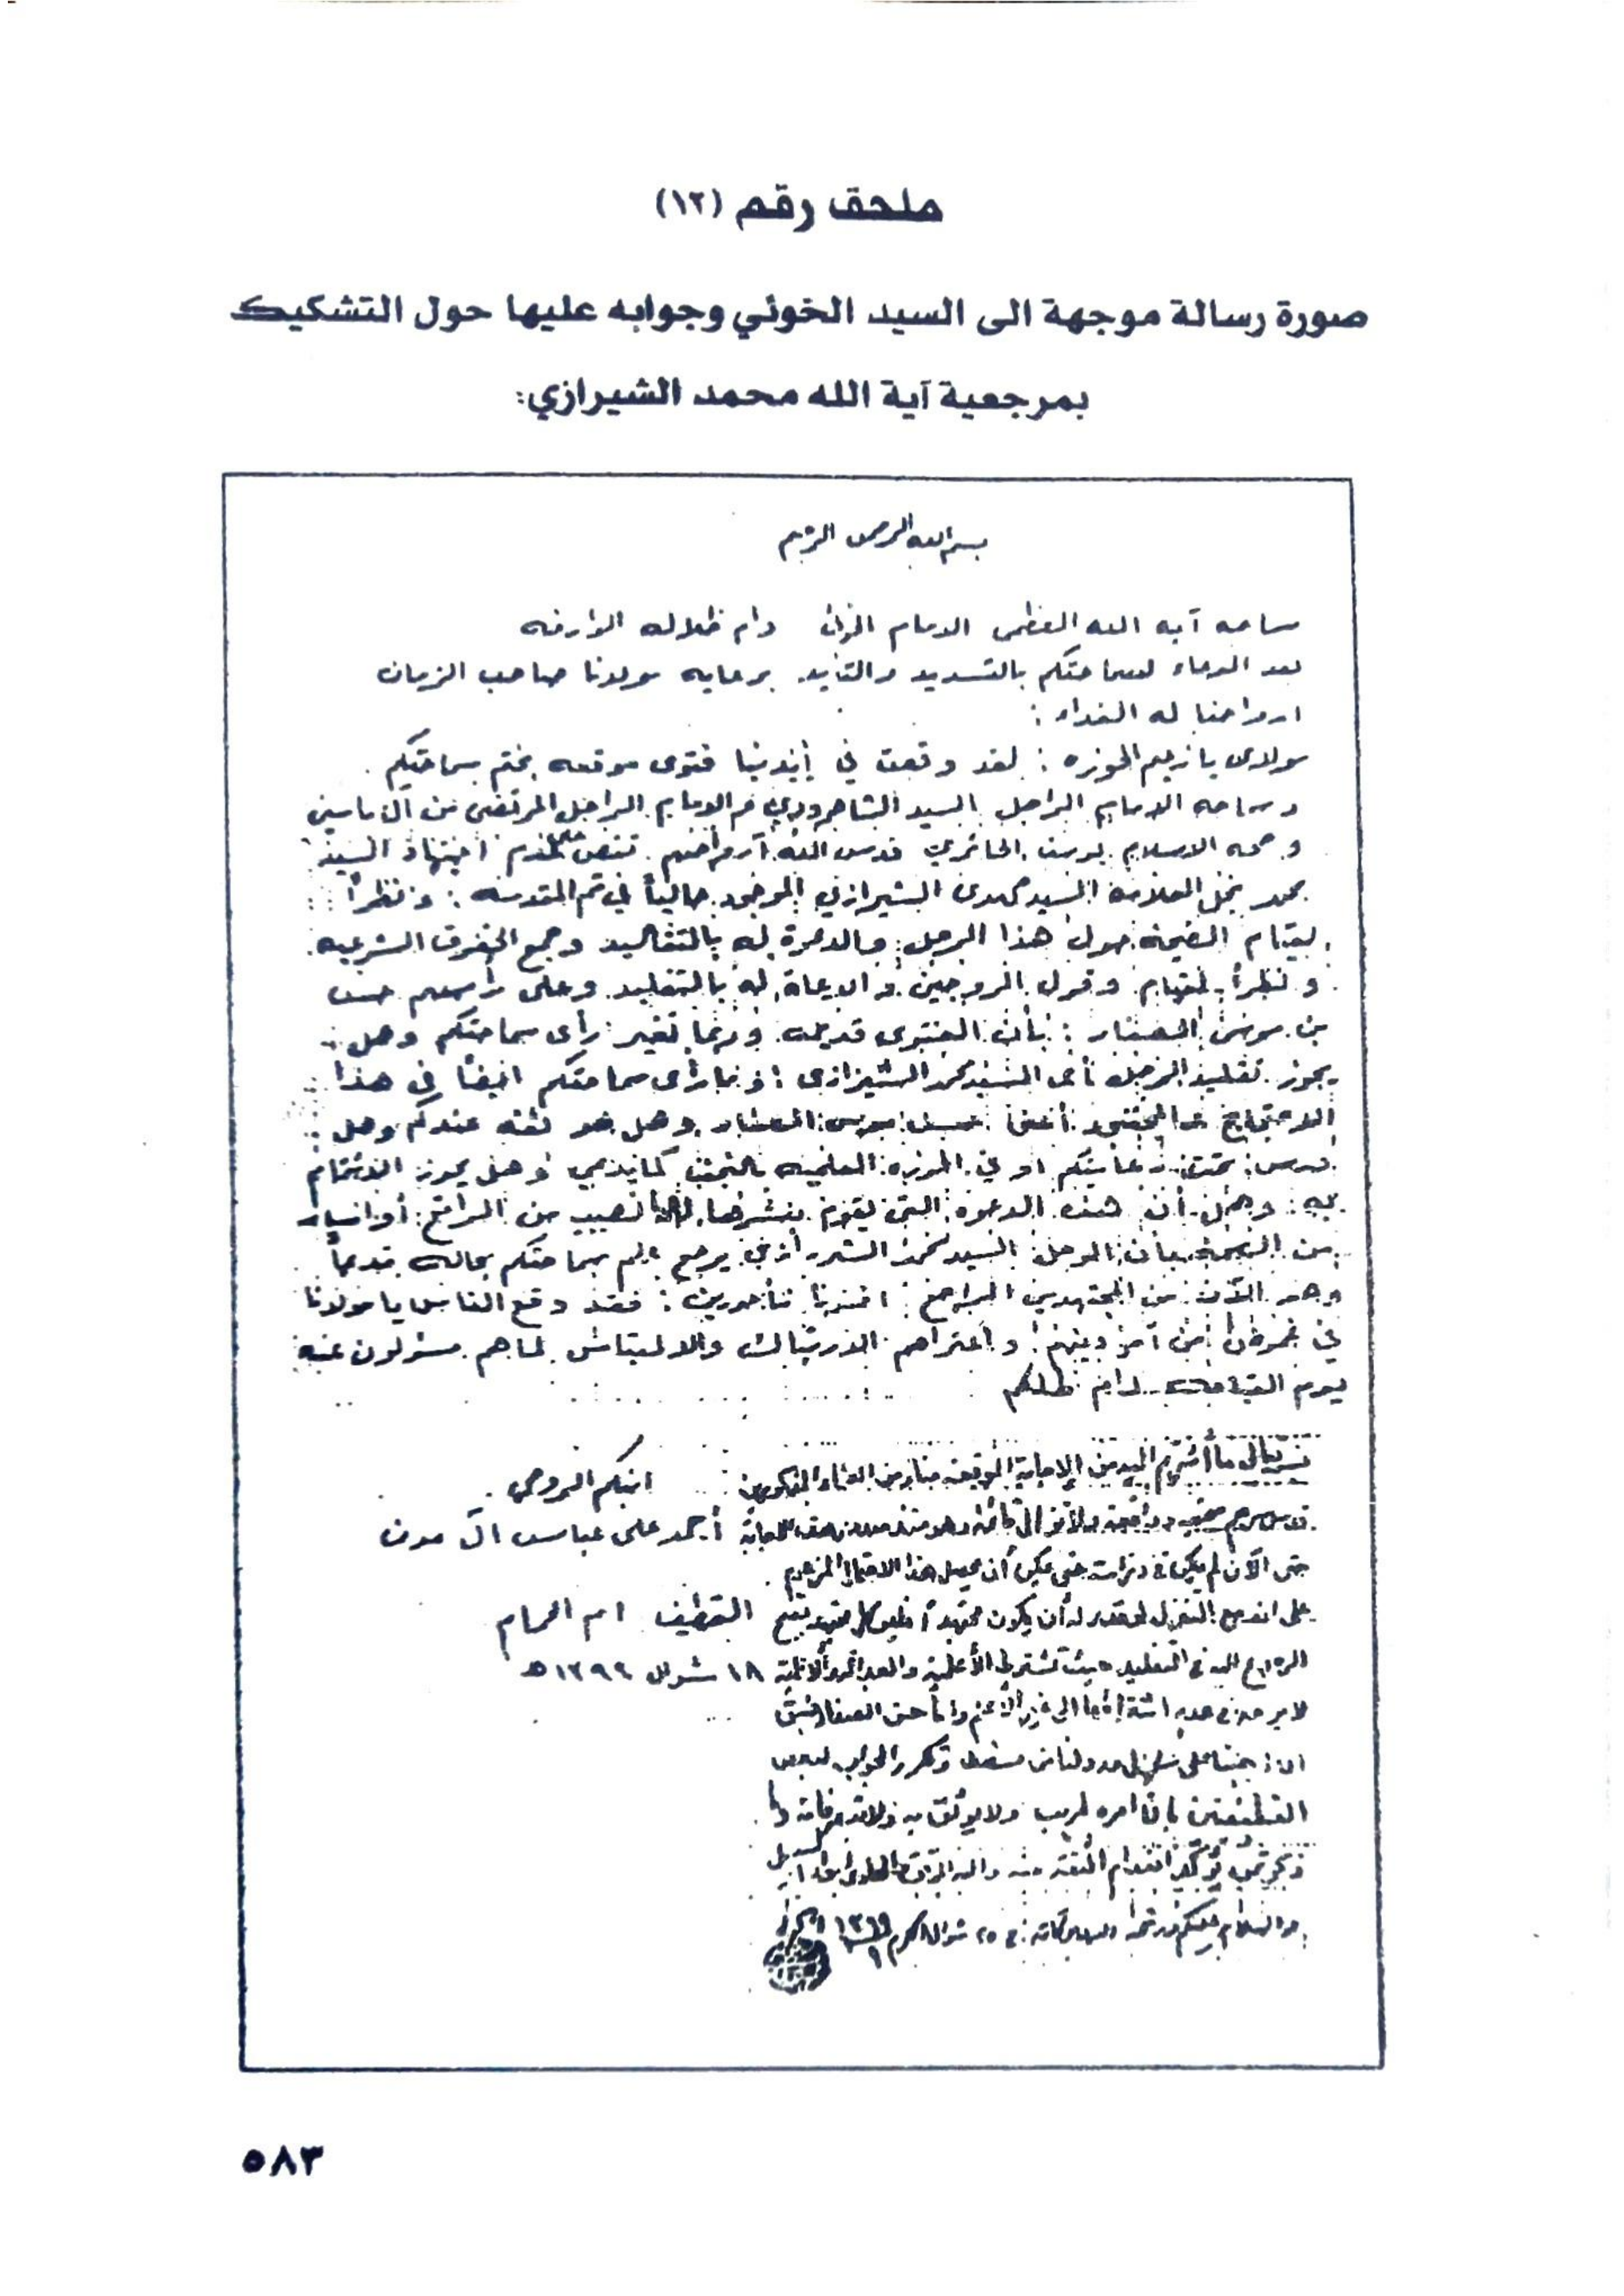 ملحق رقم (١٢)
صورة رسالة موجهة الى السيد الخوئي وجوابه عليها حول التشكيك
بمرجعية آية الله محمد الشيرازي:
بسم الله الرحمن الرحيم
سماحه آيه الله العظمى الامام الخوئي دام ظلاله الوارفه
بعد الدعاء لسماحتكم بالتسديد والتأييد برعايه مولانا صاحب الزمان
ارواحنا له الفداء :
مولاى يا زعيم الحوزه : لقد وقعت في أيدينا فتوى موقعه بختم سماحتكم
وسماحه الامام الراحل السيد الشاهرودي والامام الراحل المرتضى من آل ياسين
وحجه الاسلام يوسف الحائري قدس الله أرواحهم تنص على عدم اجتهاد السيد
محمد نجل العلامه السيد مهدى الشيرازي الموجود حالياً في قم المقدسه : ونظراً
لقيام الضجه حول هذا الرجل والدعوة له بالتقليد وجمع الحقوق الشرعيه
ونظراً لقيام وقول المروجين والدعاة له بالتقليد وعلى رأسهم حسن
بن موسى الصفار : بأن الفتوى قديمه وربما تغير رأى سماحتكم وهل
يجوز تقليد الرجل أعنى السيد محمد الشيرازى : وما رأى سماحتكم ايضاً في هذا
أعنى حسن موسى الصفار وهل هو ثقه عندكم وهل
درس تحت رعايتكم او في الحوزه العلميه بالنجف كما يدعي وهل يجوز الائتمام
به وهل أن هذه الدعوه التى يقوم بنشرها لها نصيب من الواقع أو
من الصحة بأن الرجل السيد محمد الشيرازي يرجع علم سماحتكم بحاله قديماً
وهو الآن من المجتهدين المراجع : افيدونا مأجورين : فقد وقع الناس يا مولانا
في غموض من أمر دينهم واعتراهم الارتباك والالتباس لما هم مسئولون عنه
يوم القيامه دام ظلكم
ابنكم الروحي
أحمد على عباس ال
القطيف ام الحمام
١٨ شوال ١٣٩٩ هـ
بسمه تعالى ما أشرتم اليه من الإجابة الموقعة منا ومن العلماء المذكورين
قدس سرهم صحيحة وواقعة ولا تزال قائمة وهو منذ صدور هذه الإجابة
حتى الآن لم يكن في حتى يمكن أن يحصل هذا الاحتمال المزعوم
على انه مع التنزل لو قدر له أن يكون مجتهداً فليس كل مجتهد يتبع
الرجوع اليه في التقليد حيث تشترط الأعلمية والعدالة
وأما حسن الصفار
وتكرر الجواب لبعض
القطيفيين بان امره مريب ولا يوثق به
انعدام الثقة منه
والسلام عليكم ورحمة الله وبركاته في ٢٥ شوال المكرم ١٣٩٩
٥٨٣